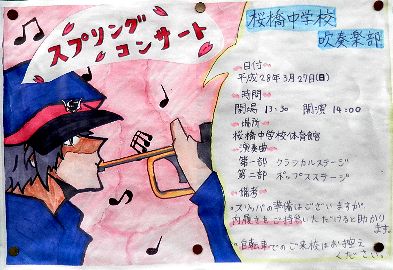 スプリング
コンサート
桜橋中学校
吹奏楽部
日付
平成28年3月27日(日)
時間
開場 13:30 開演 14:00
場所
桜橋中学校体育館
演奏曲
第一部 クラシカルステージ
第二部 ポップスステージ
備考
・スリッパの準備はございますが、
内履きをご持参いただけると助かり
ます。
・自転車でのご来校はお控え
ください。